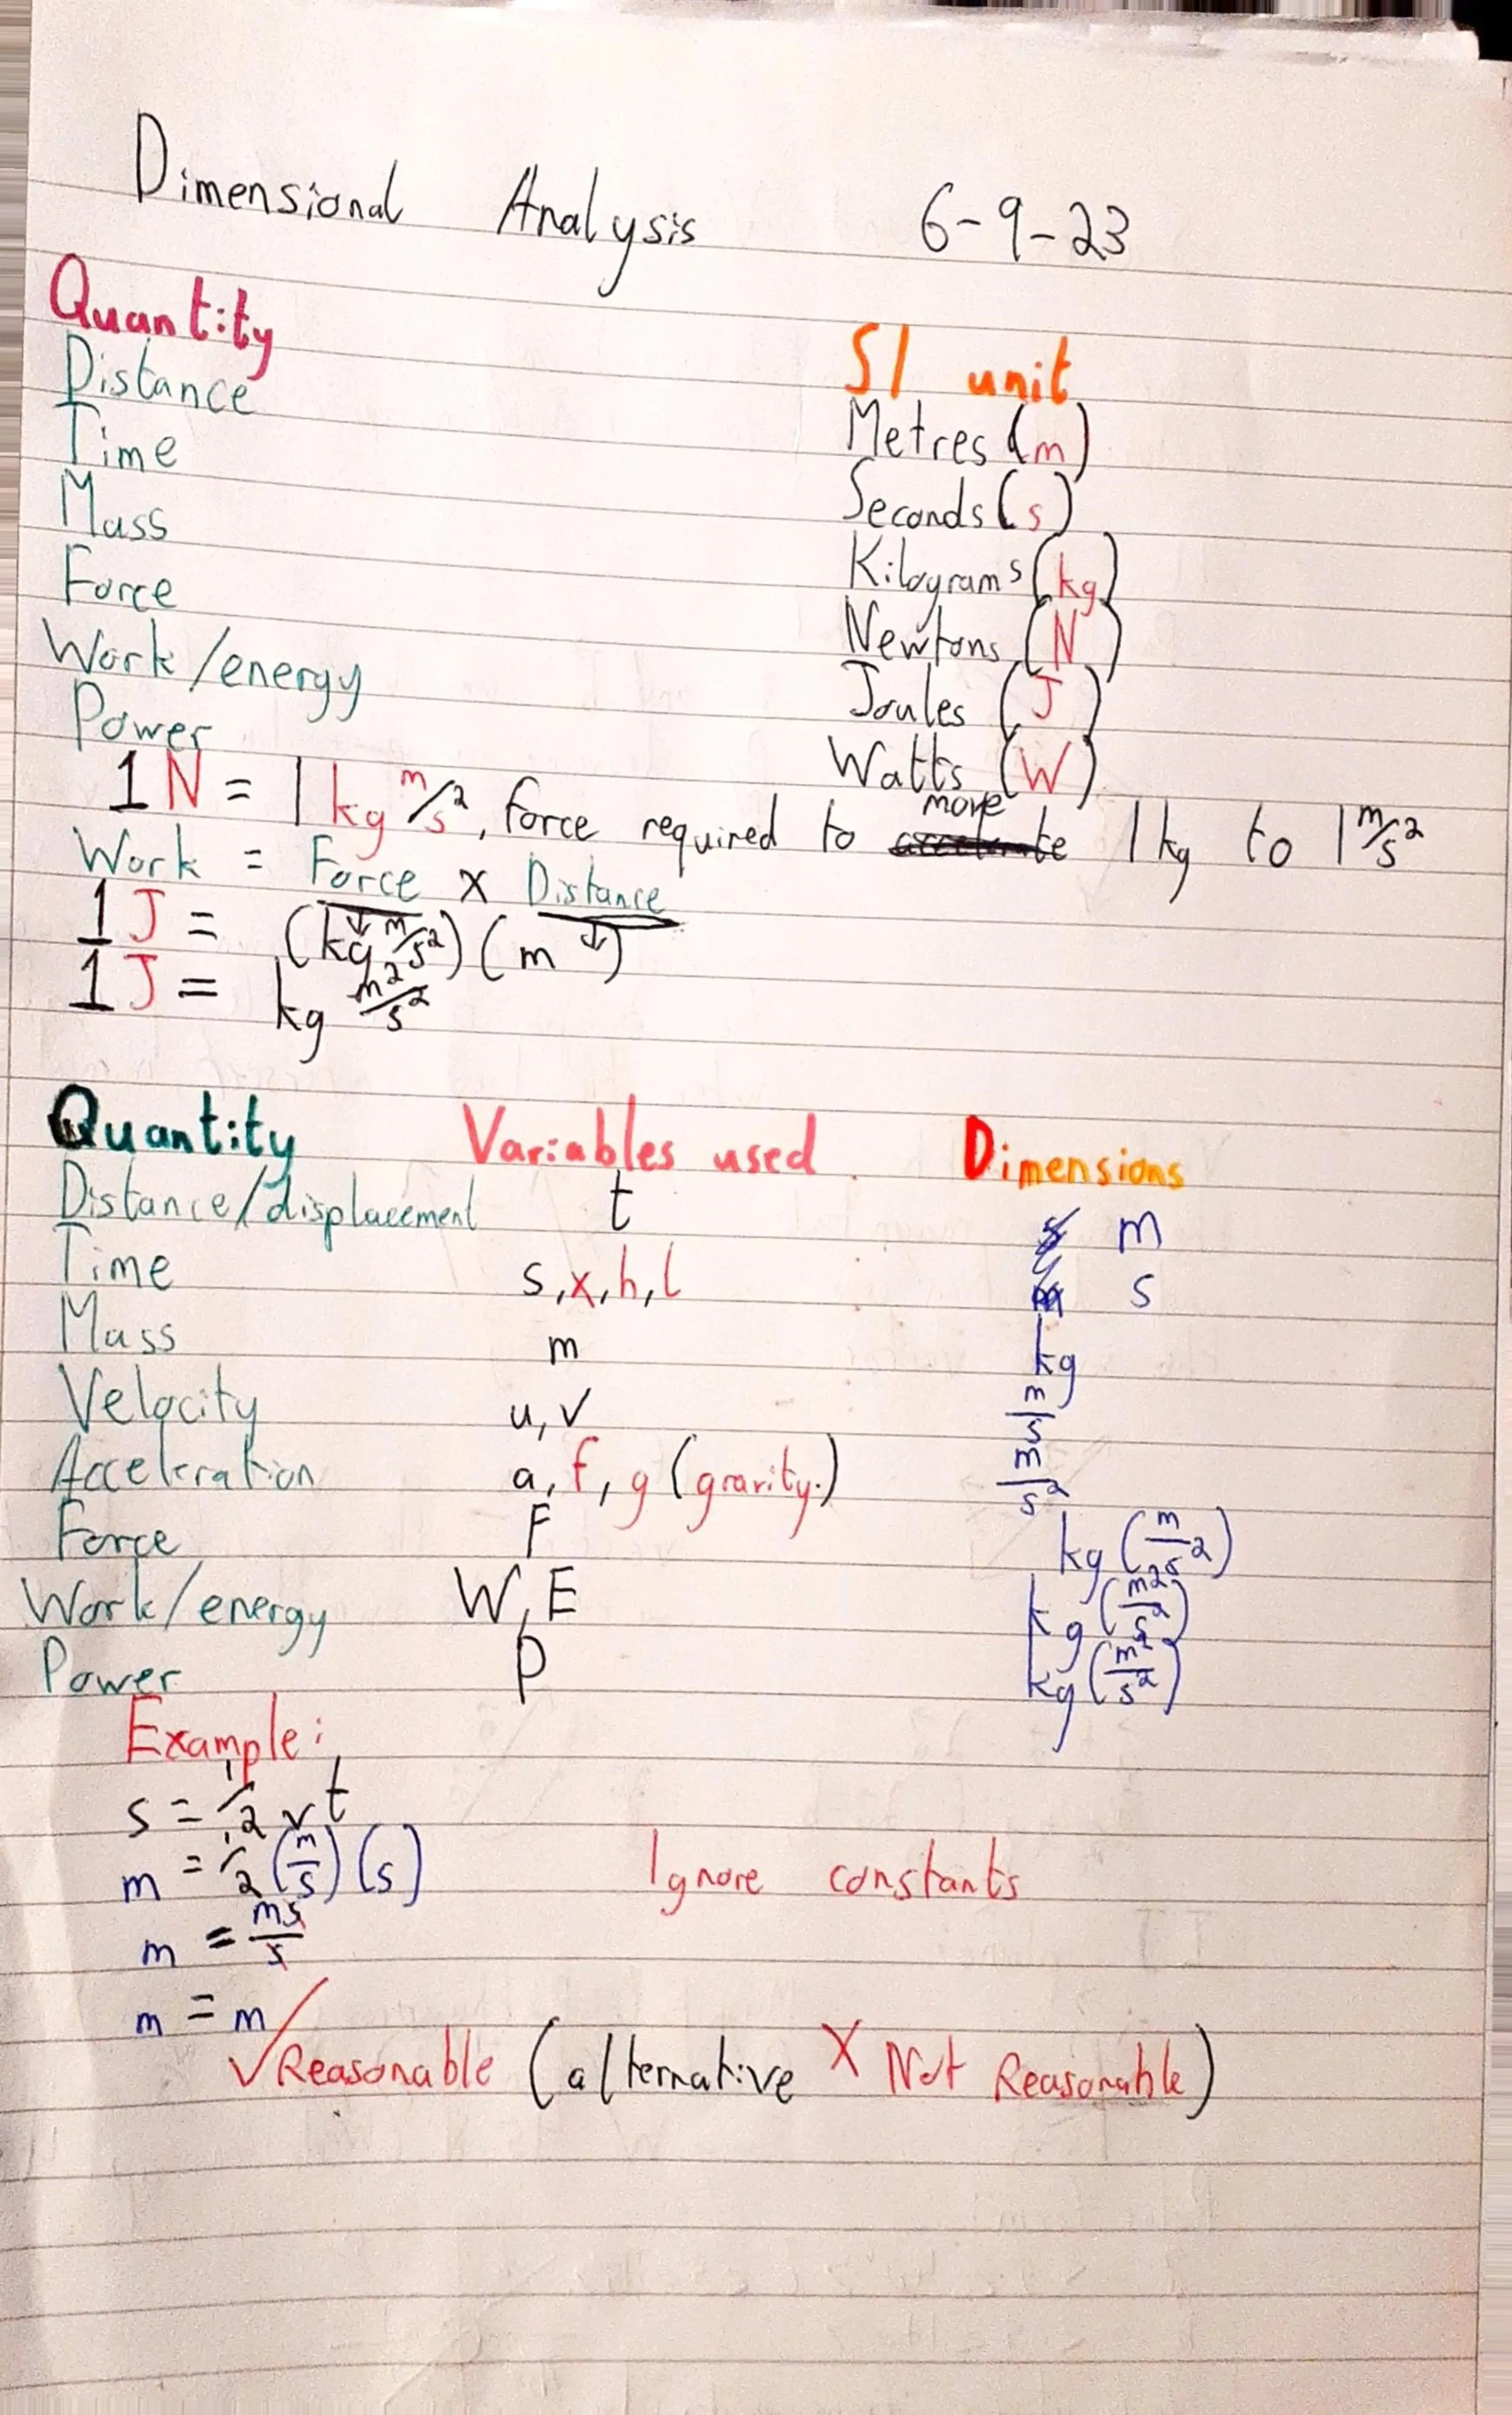 Dimensional Analysis 6-9-23
Quantity SI unit
Distance Metres (m)
Time Seconds (s)
Mass Kilograms (kg)
Force Newtons (N)
Work/energy Joules (J)
Power Watts (W)
1N = 1 kg m/s², force required to move 1kg to 1 m/s²
Work = Force x Distance
1J = (kg m/s²)(m)
1J = kg m²/s²
Quantity Variables used Dimensions
Distance/displacement t m
Time s,x,h,l s
Mass m kg
Velocity u,v m/s
Acceleration a,f,g (gravity.) m/s²
Force F kg(m/s²)
Work/energy W,E kg(m²/s²)
Power P kg(m²/s²)
Example:
s = 1/2 vt
m = 1/2 (m/s)(s) Ignore constants
m = ms/s
m = m
✓Reasonable (alternative X Not Reasonable)